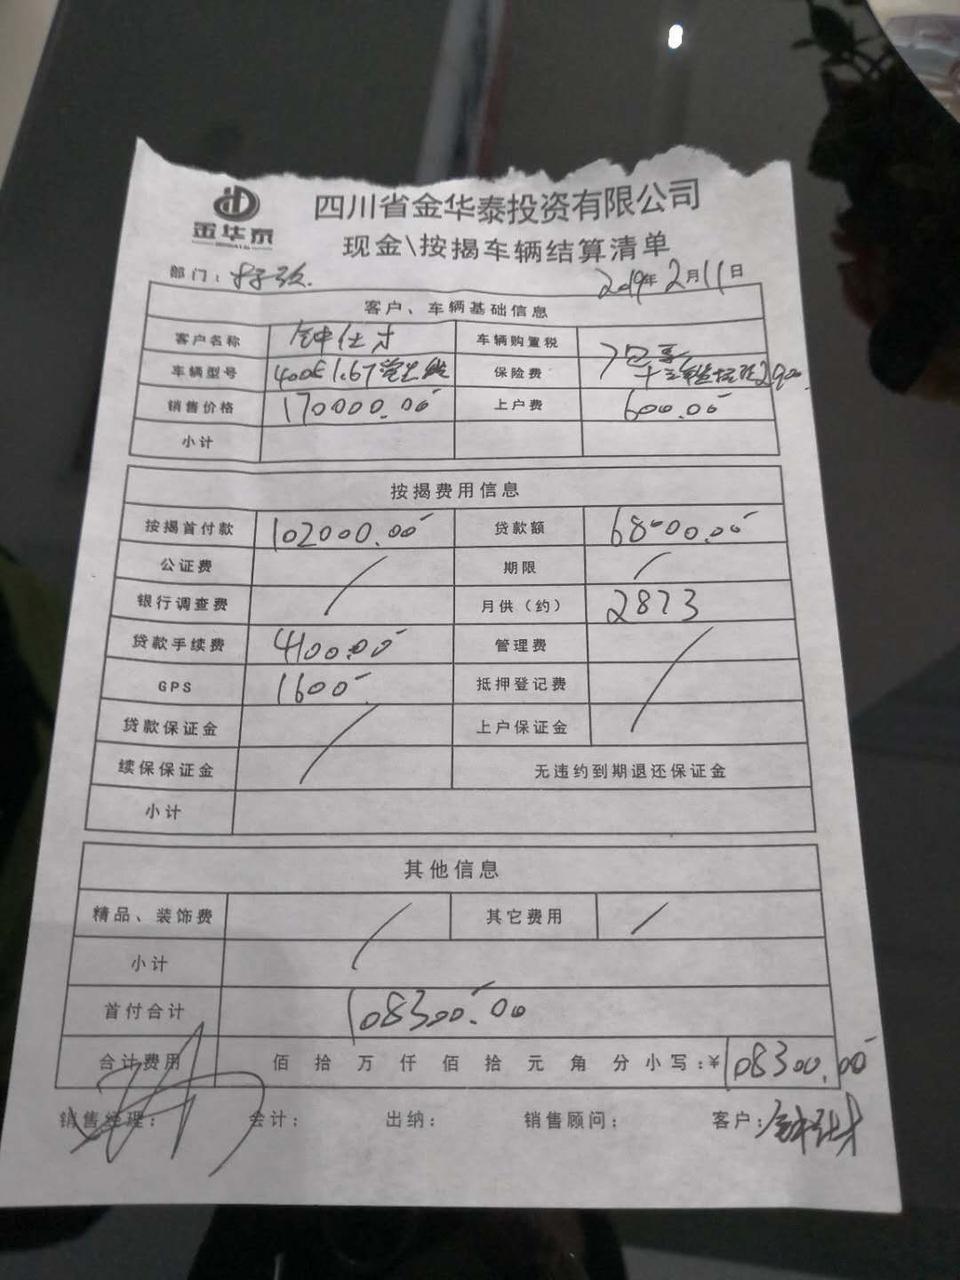 金华泰
四川省金华泰投资有限公司
现金\按揭车辆结算清单
部门:
2019年2月11日
客户、车辆基础信息
客户名称 钟仕才 车辆购置税
车辆型号 保险费
销售价格 170000.00 上户费 600.00
小计
按揭费用信息
按揭首付款 102000.00 贷款额 68000.00
公证费 期限
银行调查费 月供（约） 2873
贷款手续费 4100.00 管理费
GPS 1600 抵押登记费
贷款保证金 上户保证金
续保保证金 无违约到期退还保证金
小计
其他信息
精品、装饰费 其它费用
小计
首付合计 108300.00
合计费用 佰 拾 万 仟 佰 拾 元 角 分 小写:¥108300.00
销售经理: 会计: 出纳: 销售顾问: 客户:钟仕才